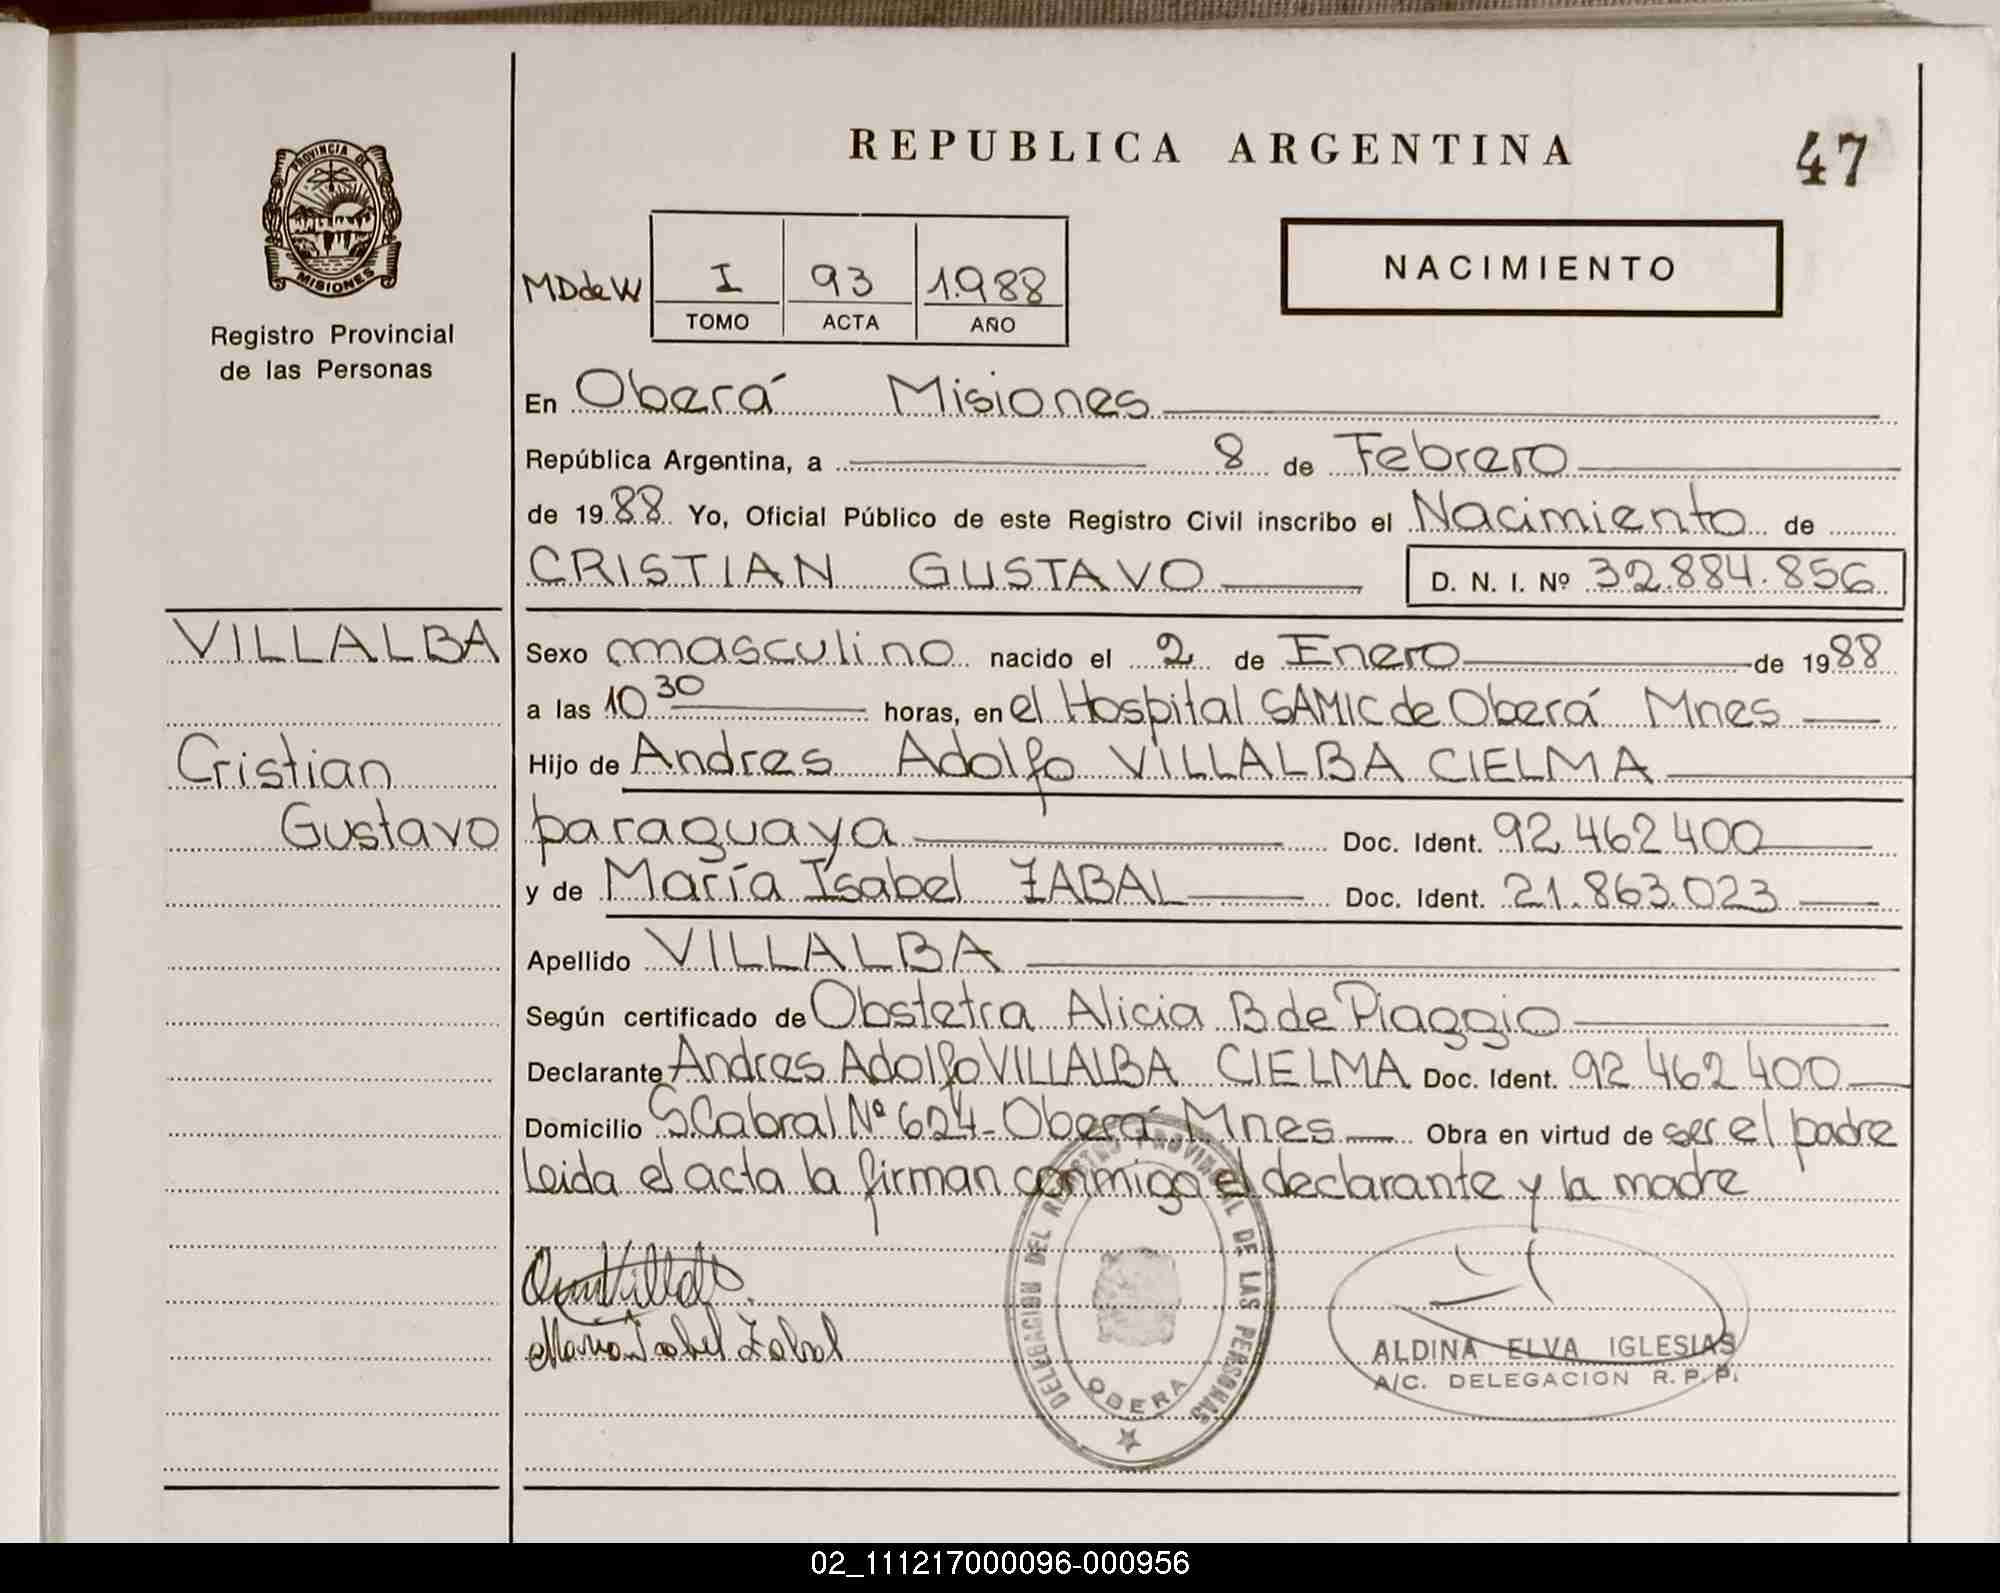 REPUBLICA ARGENTINA
47
PROVINCIA DE
MISIONES
Registro Provincial
de las Personas
MDdeW
I 93 1.988
TOMO ACTA AÑO
NACIMIENTO
En Oberá Misiones
República Argentina, a 8 de Febrero
de 1988 Yo, Oficial Público de este Registro Civil inscribo el Nacimiento de
CRISTIAN GUSTAVO D. N. I. Nº 32.884.856
VILLALBA
Cristian
Gustavo
Sexo masculino nacido el 2 de Enero de 1988
a las 10 30 horas, en el Hospital SAMIC de Oberá Mnes
Hijo de Andres Adolfo VILLALBA CIELMA
paraguaya Doc. Ident. 92.462400
y de María Isabel ZABAL Doc. Ident. 21.863.023
Apellido VILLALBA
Según certificado de Obstetra Alicia B de Piaggio
Declarante Andres Adolfo VILLALBA CIELMA Doc. Ident. 92 462 400
Domicilio S.Cabral Nº 624-Oberá Mnes Obra en virtud de ser el padre
Leida el acta la firman conmigo el declarante y la madre
Maria Isabel Zabal
DELEGACION DEL REGISTRO PROVINCIAL DE LAS PERSONAS
OBERA
ALDINA ELVA IGLESIAS
A/C. DELEGACION R. P. P.
02_111217000096-000956